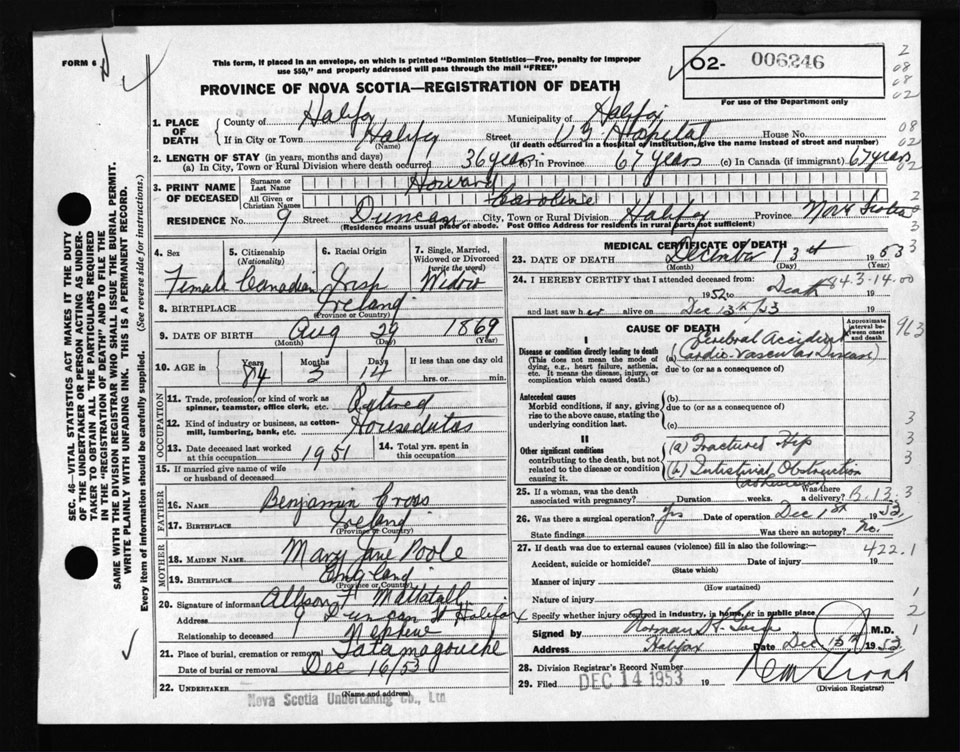 FORM 6
This form, if placed in an envelope, on which is printed "Dominion Statistics—Free, penalty for improper
use $50," and properly addressed will pass through the mail "FREE"
O2- 006246
For use of the Department only
PROVINCE OF NOVA SCOTIA—REGISTRATION OF DEATH
2
08
08
02
08
02
02
1. PLACE OF DEATH
County of Halifax Municipality of Halifax
If in City or Town Halifax Street V G Hospital House No.
(Name) (If death occurred in a hospital or institution, give the name instead of street and number)
2. LENGTH OF STAY (in years, months and days)
(a) In City, Town or Rural Division where death occurred 36 years (b) In Province 67 years (c) In Canada (if immigrant) 67 years
3. PRINT NAME OF DECEASED
Surname or Last Name Howard
All Given or Christian Names Caroline
RESIDENCE No. 9 Street Duncan City, Town or Rural Division Halifax Province Nova Scotia
(Residence means usual place of abode. Post Office Address for residents in rural parts not sufficient)
4. Sex
Female
5. Citizenship (Nationality)
Canadian
6. Racial Origin
Irish
7. Single, Married, Widowed or Divorced (write the word)
Widow
8. BIRTHPLACE Ireland
(Province or Country)
9. DATE OF BIRTH Aug 29 1869
(Month) (Day) (Year)
10. AGE in Years Months Days If less than one day old
84 3 14 hrs. or min.
OCCUPATION
11. Trade, profession, or kind of work as spinner, teamster, office clerk, etc. Retired
12. Kind of industry or business, as cotton-mill, lumbering, bank, etc. Houseduties
13. Date deceased last worked at this occupation 1951
14. Total yrs. spent in this occupation
15. If married give name of wife or husband of deceased
FATHER
16. NAME Benjamin Cross
17. BIRTHPLACE Ireland
(Province or Country)
MOTHER
18. MAIDEN NAME Mary Jane Poole
19. BIRTHPLACE England
(Province or Country)
20. Signature of informant Allison F Mattatall
Address 9 Duncan St Halifax
Relationship to deceased Nephew
21. Place of burial, cremation or removal Tatamagouche
Date of burial or removal Dec 16/53
22. UNDERTAKER
(Name and address)
Nova Scotia Undertaking Co., Ltd
MEDICAL CERTIFICATE OF DEATH
23. DATE OF DEATH December 13th 1953
(Month) (Day) (Year)
24. I HEREBY CERTIFY that I attended deceased from:
1952 to Death 19
843-14.00
and last saw her alive on Dec 13th/53 19
CAUSE OF DEATH
Approximate interval between onset and death
963
I
Disease or condition directly leading to death (a) Cerebral Accident
(Cardio-Vascular Disease)
(This does not mean the mode of dying, e.g., heart failure, asthenia, etc. It means the disease, injury, or complication which caused death.)
due to (or as a consequence of)
Antecedent causes
Morbid conditions, if any, giving rise to the above cause, stating the underlying condition last.
(b)
due to (or as a consequence of)
(c)
II
Other significant conditions
contributing to the death, but not related to the disease or condition causing it.
(a) Fractured Hip
(b) Intestinal Obstruction
(adhesions)
25. If a woman, was the death associated with pregnancy? Duration weeks. Was there a delivery?
26. Was there a surgical operation? Yes Date of operation Dec 1st 1953
State findings Was there an autopsy? No.
27. If death was due to external causes (violence) fill in also the following:—
422.1
Accident, suicide or homicide? Date of injury 19
(State which)
Manner of injury
(How sustained)
Nature of injury
Specify whether injury occurred in industry, in home, or in public place
Signed by M.D.
Address Halifax Date Dec 13th 1953
28. Division Registrar's Record Number
29. Filed DEC 14 1953 19
(Division Registrar)
SEC. 46—VITAL STATISTICS ACT MAKES IT THE DUTY
OF THE UNDERTAKER OR PERSON ACTING AS UNDER-
TAKER TO OBTAIN ALL THE PARTICULARS REQUIRED
IN THE "REGISTRATION OF DEATH" AND TO FILE THE
SAME WITH THE DIVISION REGISTRAR WHO SHALL ISSUE THE BURIAL PERMIT.
WRITE PLAINLY WITH UNFADING INK. THIS IS A PERMANENT RECORD.
Every item of information should be carefully supplied. (See reverse side for instructions.)